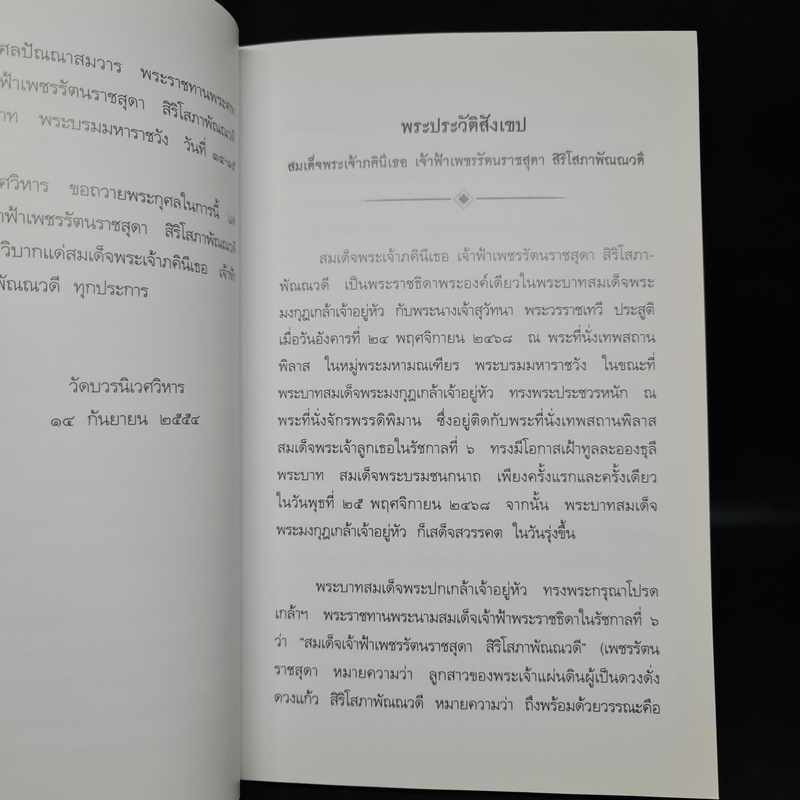 ศลปัณณาสมวาร พระราชทานพระศพ
ฟ้าเพชรรัตนราชสุดา สิริโสภาพัณณวดี
าท พระบรมมหาราชวัง วันที่ ๑๔-๑๕
ศวิหาร ขอถวายพระกุศลในการนี้ แด่
ฟ้าเพชรรัตนราชสุดา สิริโสภาพัณณวดี
วิบากแด่สมเด็จพระเจ้าภคินีเธอ เจ้าฟ้า
พัณณวดี ทุกประการ
วัดบวรนิเวศวิหาร
๑๔ กันยายน ๒๕๕๔
พระประวัติสังเขป
สมเด็จพระเจ้าภคินีเธอ เจ้าฟ้าเพชรรัตนราชสุดา สิริโสภาพัณณวดี
สมเด็จพระเจ้าภคินีเธอ เจ้าฟ้าเพชรรัตนราชสุดา สิริโสภา-
พัณณวดี เป็นพระราชธิดาพระองค์เดียวในพระบาทสมเด็จพระ
มงกุฎเกล้าเจ้าอยู่หัว กับพระนางเจ้าสุวัทนา พระวรราชเทวี ประสูติ
เมื่อวันอังคารที่ ๒๔ พฤศจิกายน ๒๔๖๘ ณ พระที่นั่งเทพสถาน
พิลาส ในหมู่พระมหามณเฑียร พระบรมมหาราชวัง ในขณะที่
พระบาทสมเด็จพระมงกุฎเกล้าเจ้าอยู่หัว ทรงพระประชวรหนัก ณ
พระที่นั่งจักรพรรดิพิมาน ซึ่งอยู่ติดกับพระที่นั่งเทพสถานพิลาส
สมเด็จพระเจ้าลูกเธอในรัชกาลที่ ๖ ทรงมีโอกาสเฝ้าทูลละอองธุลี
พระบาท สมเด็จพระบรมชนกนาถ เพียงครั้งแรกและครั้งเดียว
ในวันพุธที่ ๒๕ พฤศจิกายน ๒๔๖๘ จากนั้น พระบาทสมเด็จ
พระมงกุฎเกล้าเจ้าอยู่หัว ก็เสด็จสวรรคต ในวันรุ่งขึ้น
พระบาทสมเด็จพระปกเกล้าเจ้าอยู่หัว ทรงพระกรุณาโปรด
เกล้าฯ พระราชทานพระนามสมเด็จเจ้าฟ้าพระราชธิดาในรัชกาลที่ ๖
ว่า “สมเด็จเจ้าฟ้าเพชรรัตนราชสุดา สิริโสภาพัณณวดี” (เพชรรัตน
ราชสุดา หมายความว่า ลูกสาวของพระเจ้าแผ่นดินผู้เป็นดวงดั่ง
ดวงแก้ว สิริโสภาพัณณวดี หมายความว่า ถึงพร้อมด้วยวรรณะคือ